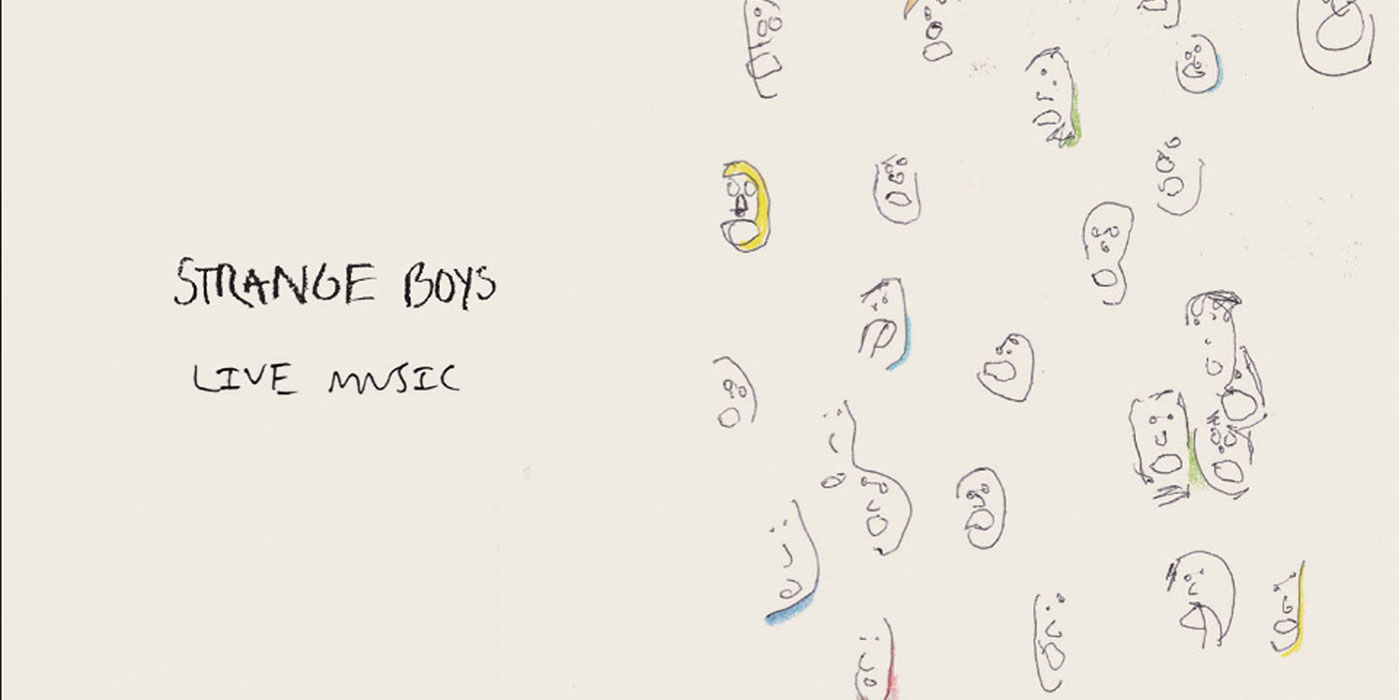 STRANGE BOYS
LIVE MUSIC